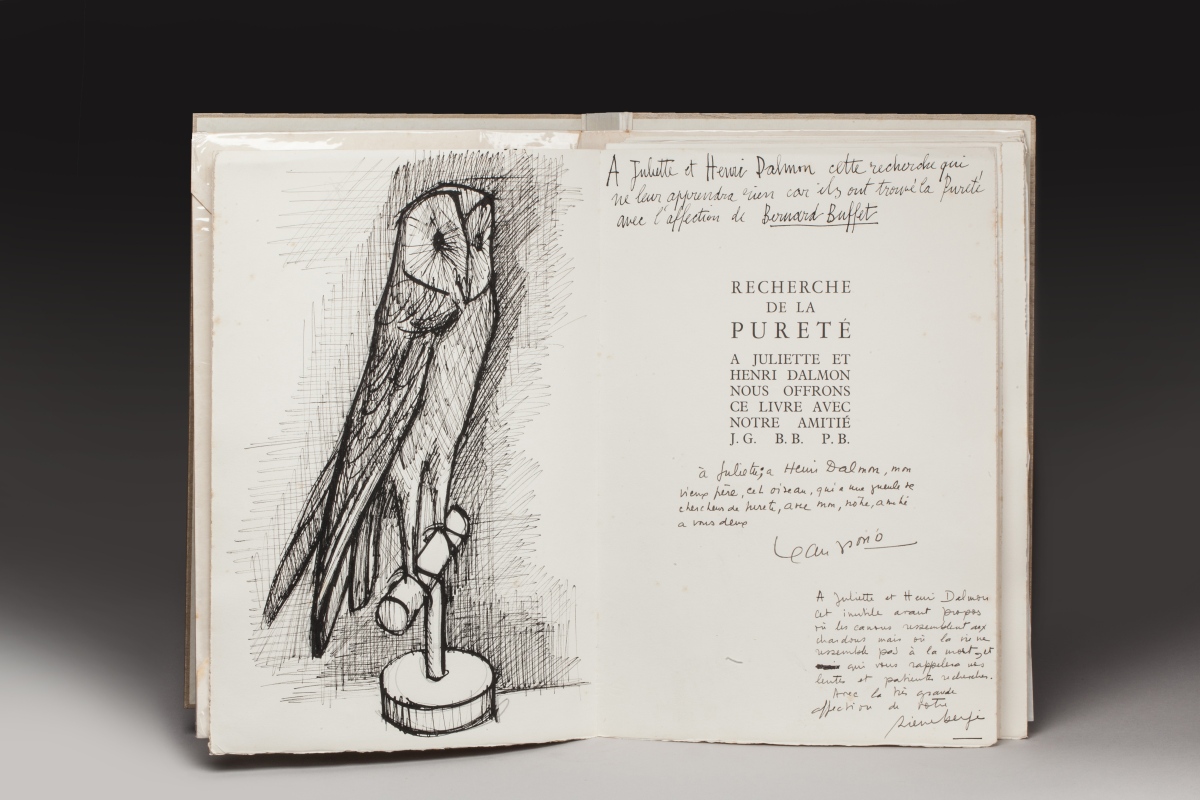 A Juliette et Henri Dalmon cette recherche qui
ne leur apprendra rien car ils ont trouvé la Pureté
avec l'affection de Bernard Buffet
RECHERCHE
DE LA
PURETÉ
A JULIETTE ET
HENRI DALMON
NOUS OFFRONS
CE LIVRE AVEC
NOTRE AMITIÉ
J.G. B.B. P.B.
à Juliette, a Henri Dalmon, mon
vieux frère, cet oiseau, qui a une gueule de
chercheur de pureté, avec mon, nôtre, amitié
a vous deux
Jean Giono
A Juliette et Henri Dalmon
cet inutile avant propos
où les canons ressemblent aux
chardons mais où la vie ne
ressemble pas à la mort et
qui vous rappelera ses
lentes et patientes recherches.
Avec la très grande
affection de votre
Pierre Bergé